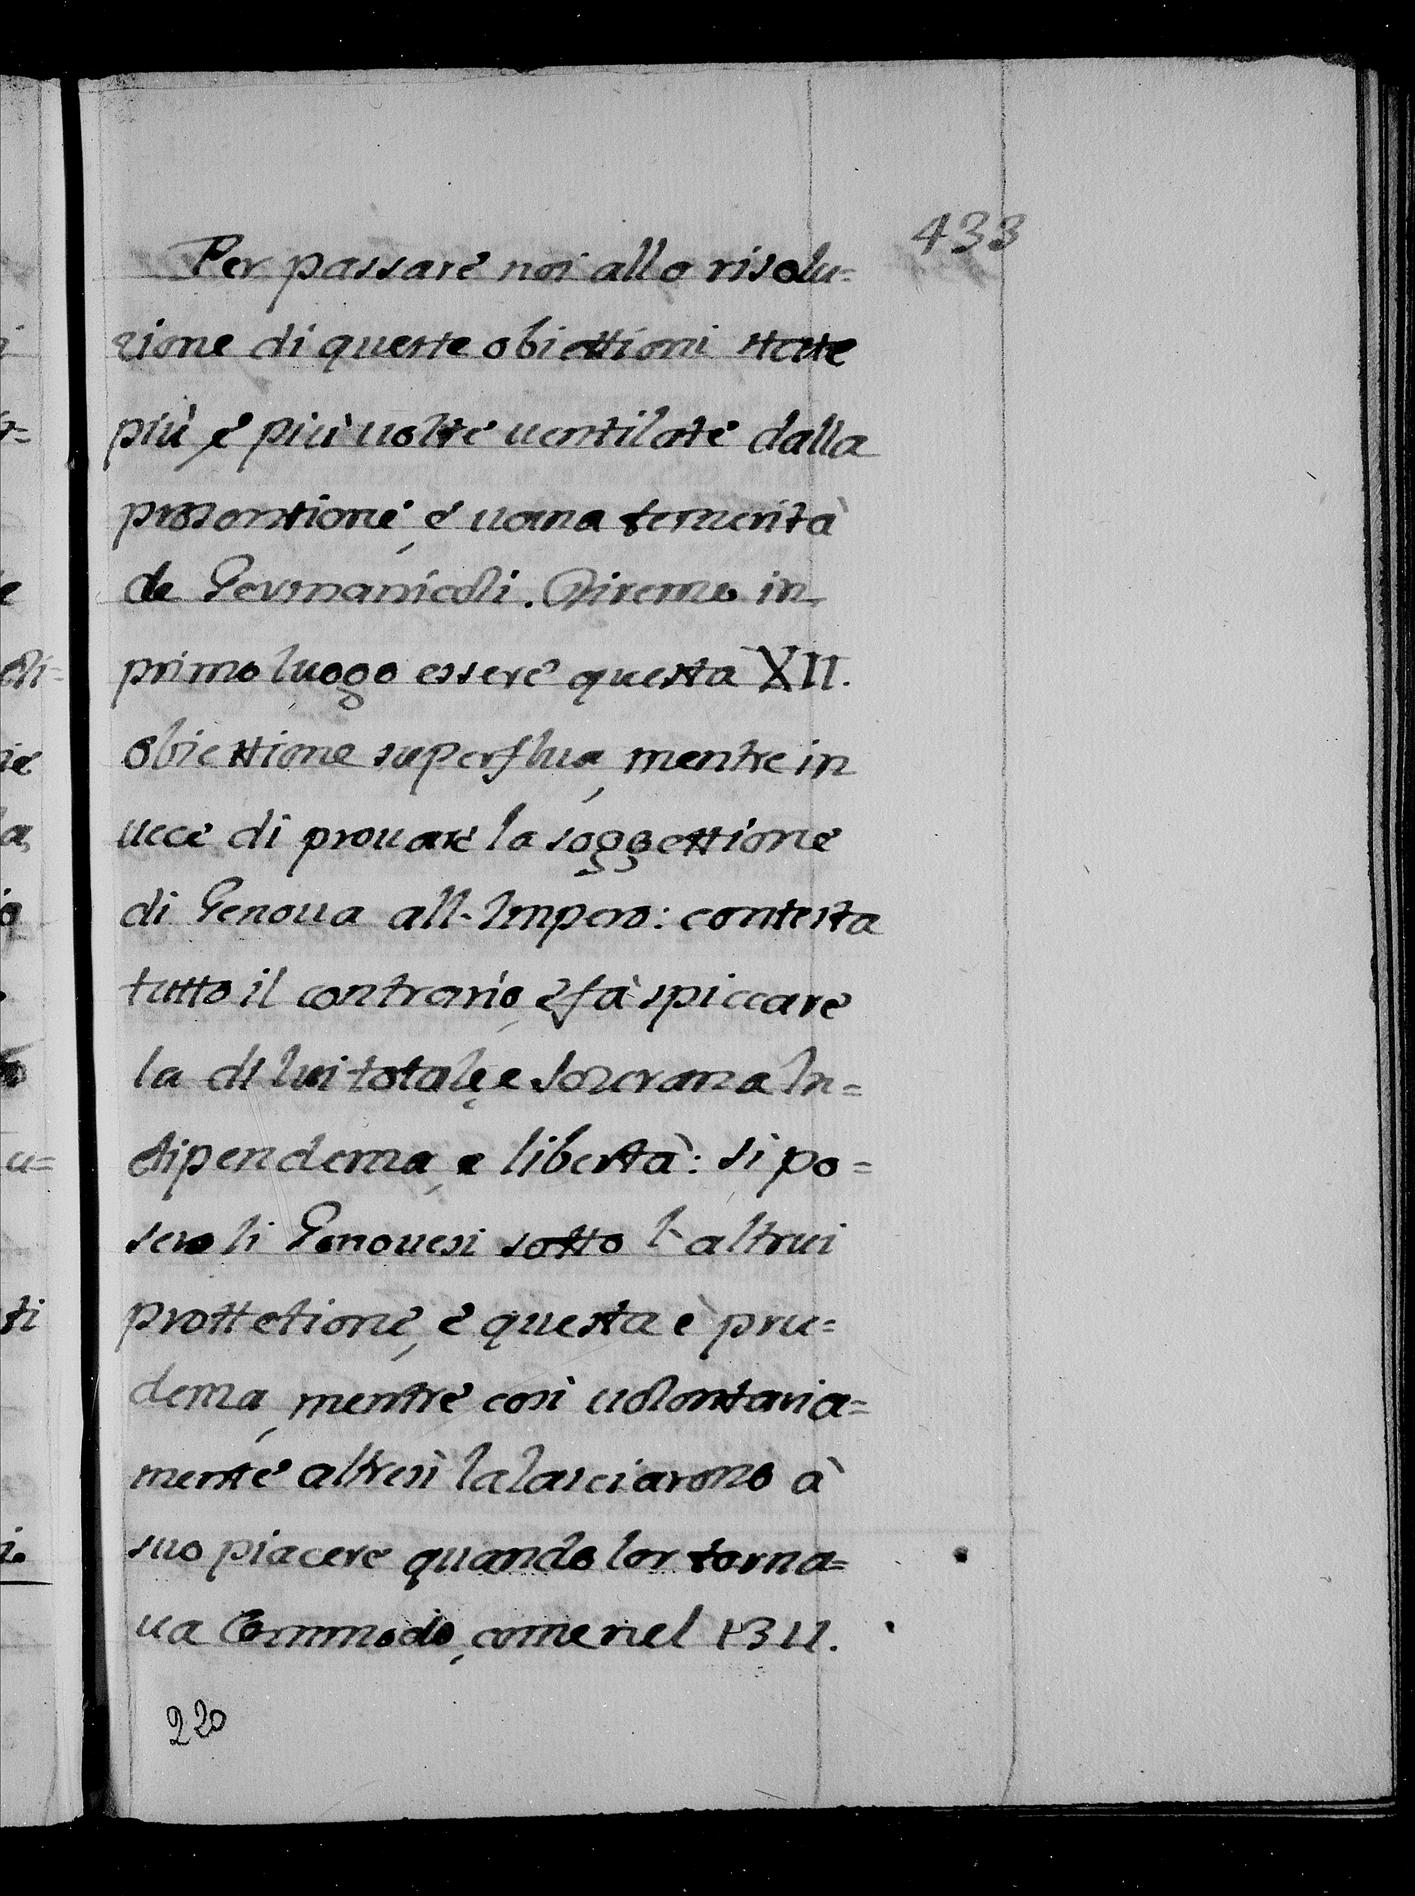 433
Per passare noi alla risolu=
zione di queste obiettioni state
più, e più volte uentilate dalla
prosontione, e uana temerità
de Germanicoli. Diremo in
primo luogo essere questa XII.
obiettione superflua, mentre in
uece di prouare la soggettione
di Genoua all'Impero: contesta
tutto il contrario, e fà spiccare
la di lui totale, e Sourana In=
dipendenza, e libertà: si po=
sero li Genouesi sotto l'altrui
prottetione, e questa è pru=
denza, mentre così uolontaria=
mente altresì la lasciarono à
suo piacere quando lor torna=
ua Commodo, come nel 1311.
220